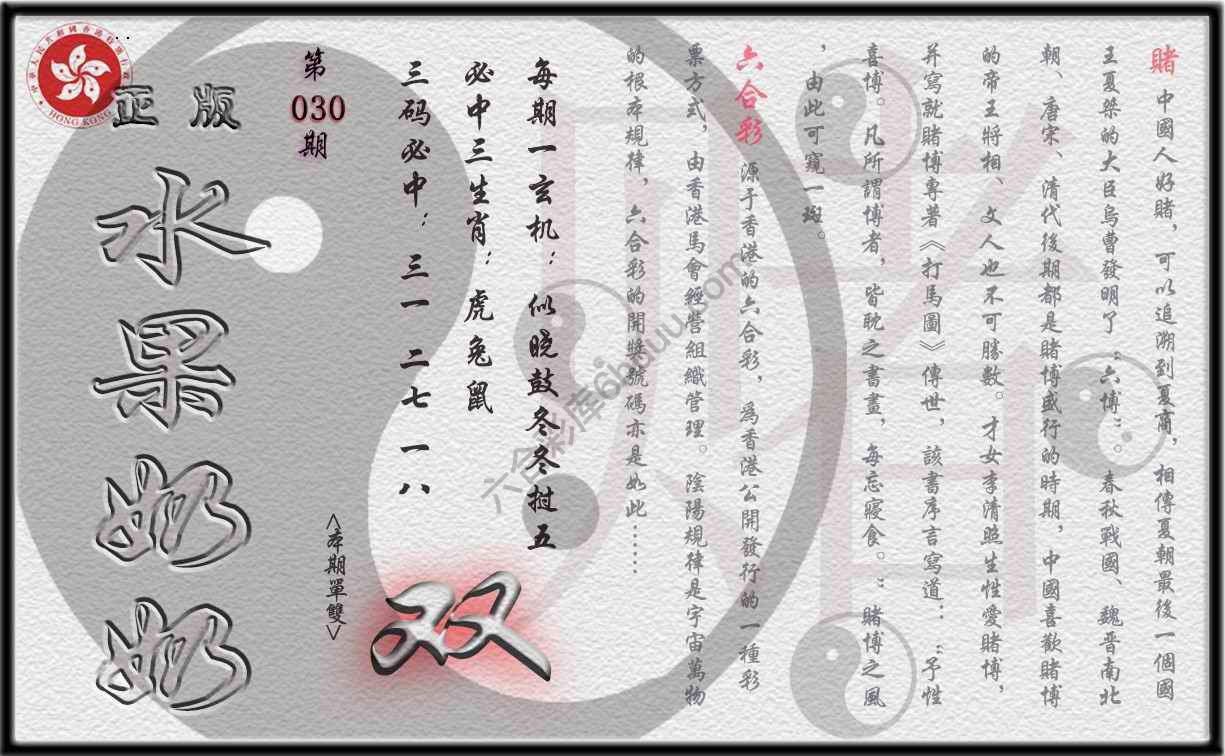 賭 中國人好賭，可以追溯到夏商，相傳夏朝最後一個國
王夏桀的大臣烏曹發明了“六博”。春秋戰國、魏晋南北
朝、唐宋、清代後期都是賭博盛行的時期，中國喜歡賭博
的帝王將相、文人也不可勝數。才女李清照生性愛賭博，
并寫就賭博專著《打馬圖》傳世，該書序言寫道：“予性
喜博。凡所謂博者，皆耽之書畫，每忘寢食。”賭博之風
，由此可窺一斑。
六合彩 源于香港的六合彩，爲香港公開發行的一種彩
票方式，由香港馬會經營組織管理。陰陽規律是宇宙萬物
的根本規律，六合彩的開獎號碼亦是如此……
每期一玄机：似晓鼓冬冬挝五
必中三生肖：虎兔鼠
三码必中：三一 二七 一八
双
<本期單雙>
第
030
期
正版
水果奶奶
中華人民共和國香港特別行政區
HONG KONG
六合彩库6hduu.com
賭